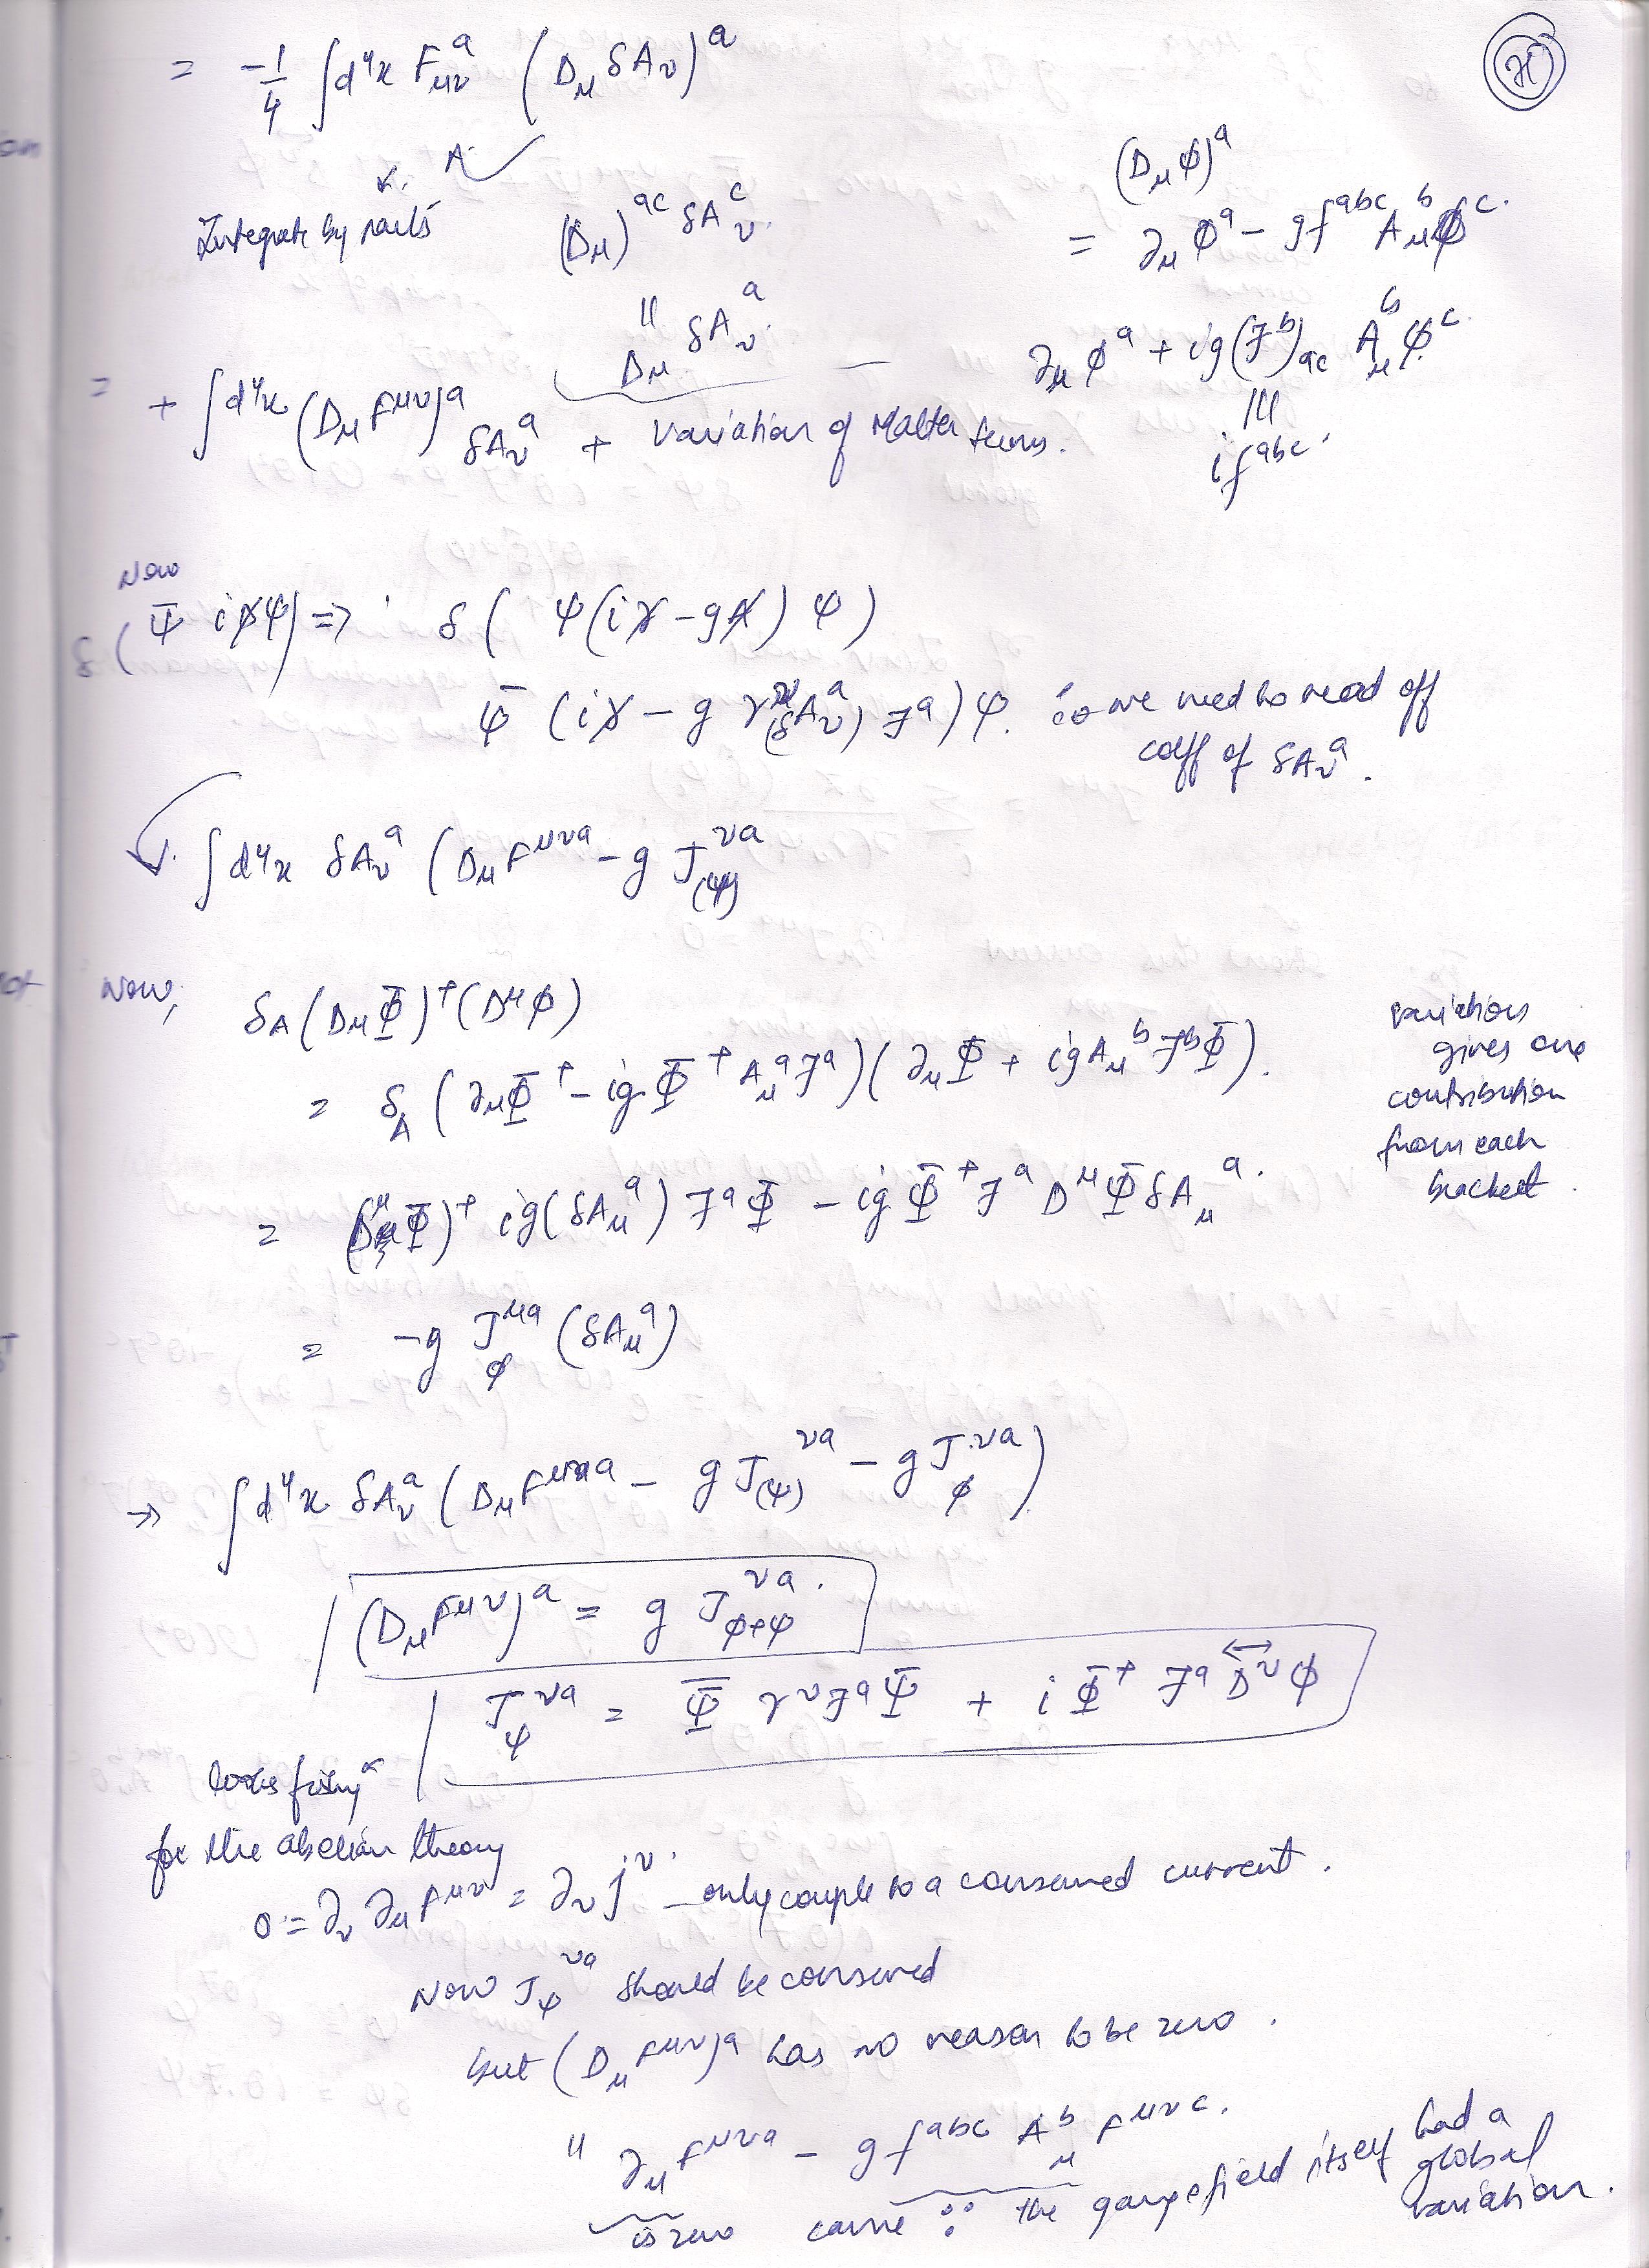 = -1/4 ∫d⁴x F_μν^a (D_μ δA_ν)^a
Integrate by parts (D_μ)^ac δA_ν^c.
" D_μ δA_ν^a.
(D_μ φ)^a
= ∂_μ φ^a - g f^abc A_μ^b φ^c.
∂_μ φ^a + ig(T^b)_ac A_μ^b φ^c.
|||
i f^abc.
= + ∫d⁴x (D_μ F^μν)^a δA_ν^a + variation of Matter terms.
Now
δ( Ψ̄ iD̸Ψ) => δ( Ψ(i∂̸ - gA̸) Ψ)
Ψ̄ (i∂̸ - g γ^ν(δA_ν^a) T^a)Ψ. so we need to read off
coeff of δA_ν^a.
∫d⁴x δA_ν^a (D_μ F^μνa - g J_(Ψ)^νa
Now, δ_A (D_μ Φ)^† (D^μ φ)
= δ_A (∂_μ Φ^† - ig Φ^† A_μ^a T^a)(∂_μ Φ + ig A_μ^b T^b Φ).
= (D^μ Φ)^† ig(δA_μ^a) T^a Φ - ig Φ^† T^a D^μ Φ δA_μ^a.
variation
gives one
contribution
from each
bracket.
= -g J_φ^μa (δA_μ^a)
→ ∫d⁴x δA_ν^a (D_μ F^μνa - g J_(Ψ)^νa - g J_φ^νa)
(D_μ F^μν)^a = g J_φ+ψ^νa.
J_ψ^νa = Ψ̄ γ^ν T^a Ψ + i Φ^† T^a D↔^ν φ
looks fishy
for the abelian theory
0 = ∂_ν ∂_μ F^μν = ∂_ν j^ν. – only couple to a conserved current.
Now J_ψ^νa should be conserved
but (D_μ F^μν)^a has no reason to be zero.
" ∂_μ F^μνa - g f^abc A_μ^b F^μνc.
is zero came ∵ the gauge field itself had a
global
variation.